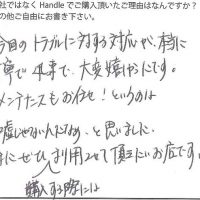 社ではなく Handleでご購入頂いたご理由はなんですか？
の他ご自由にお書き下さい。
今回のトラブルに対する対応が、本当に
寧で、大変嬉しいです。
メンテナンスもお任せ！というのは
嘘じゃないんだなぁ、と思いました。
にぜひ利用させて頂きたいお店です
購入する際には